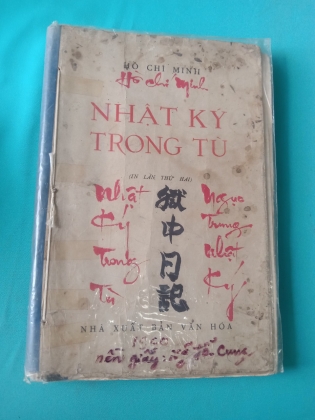 HỒ CHÍ MINH
Hồ Chí Minh
NHẬT KÝ
TRONG TÙ
(IN LẦN THỨ HAI)
Nhật
Ký
Trong
Tù
獄中日記
Ngục
Trung
Nhật
Ký
NHÀ XUẤT BẢN VĂN HÓA
1960